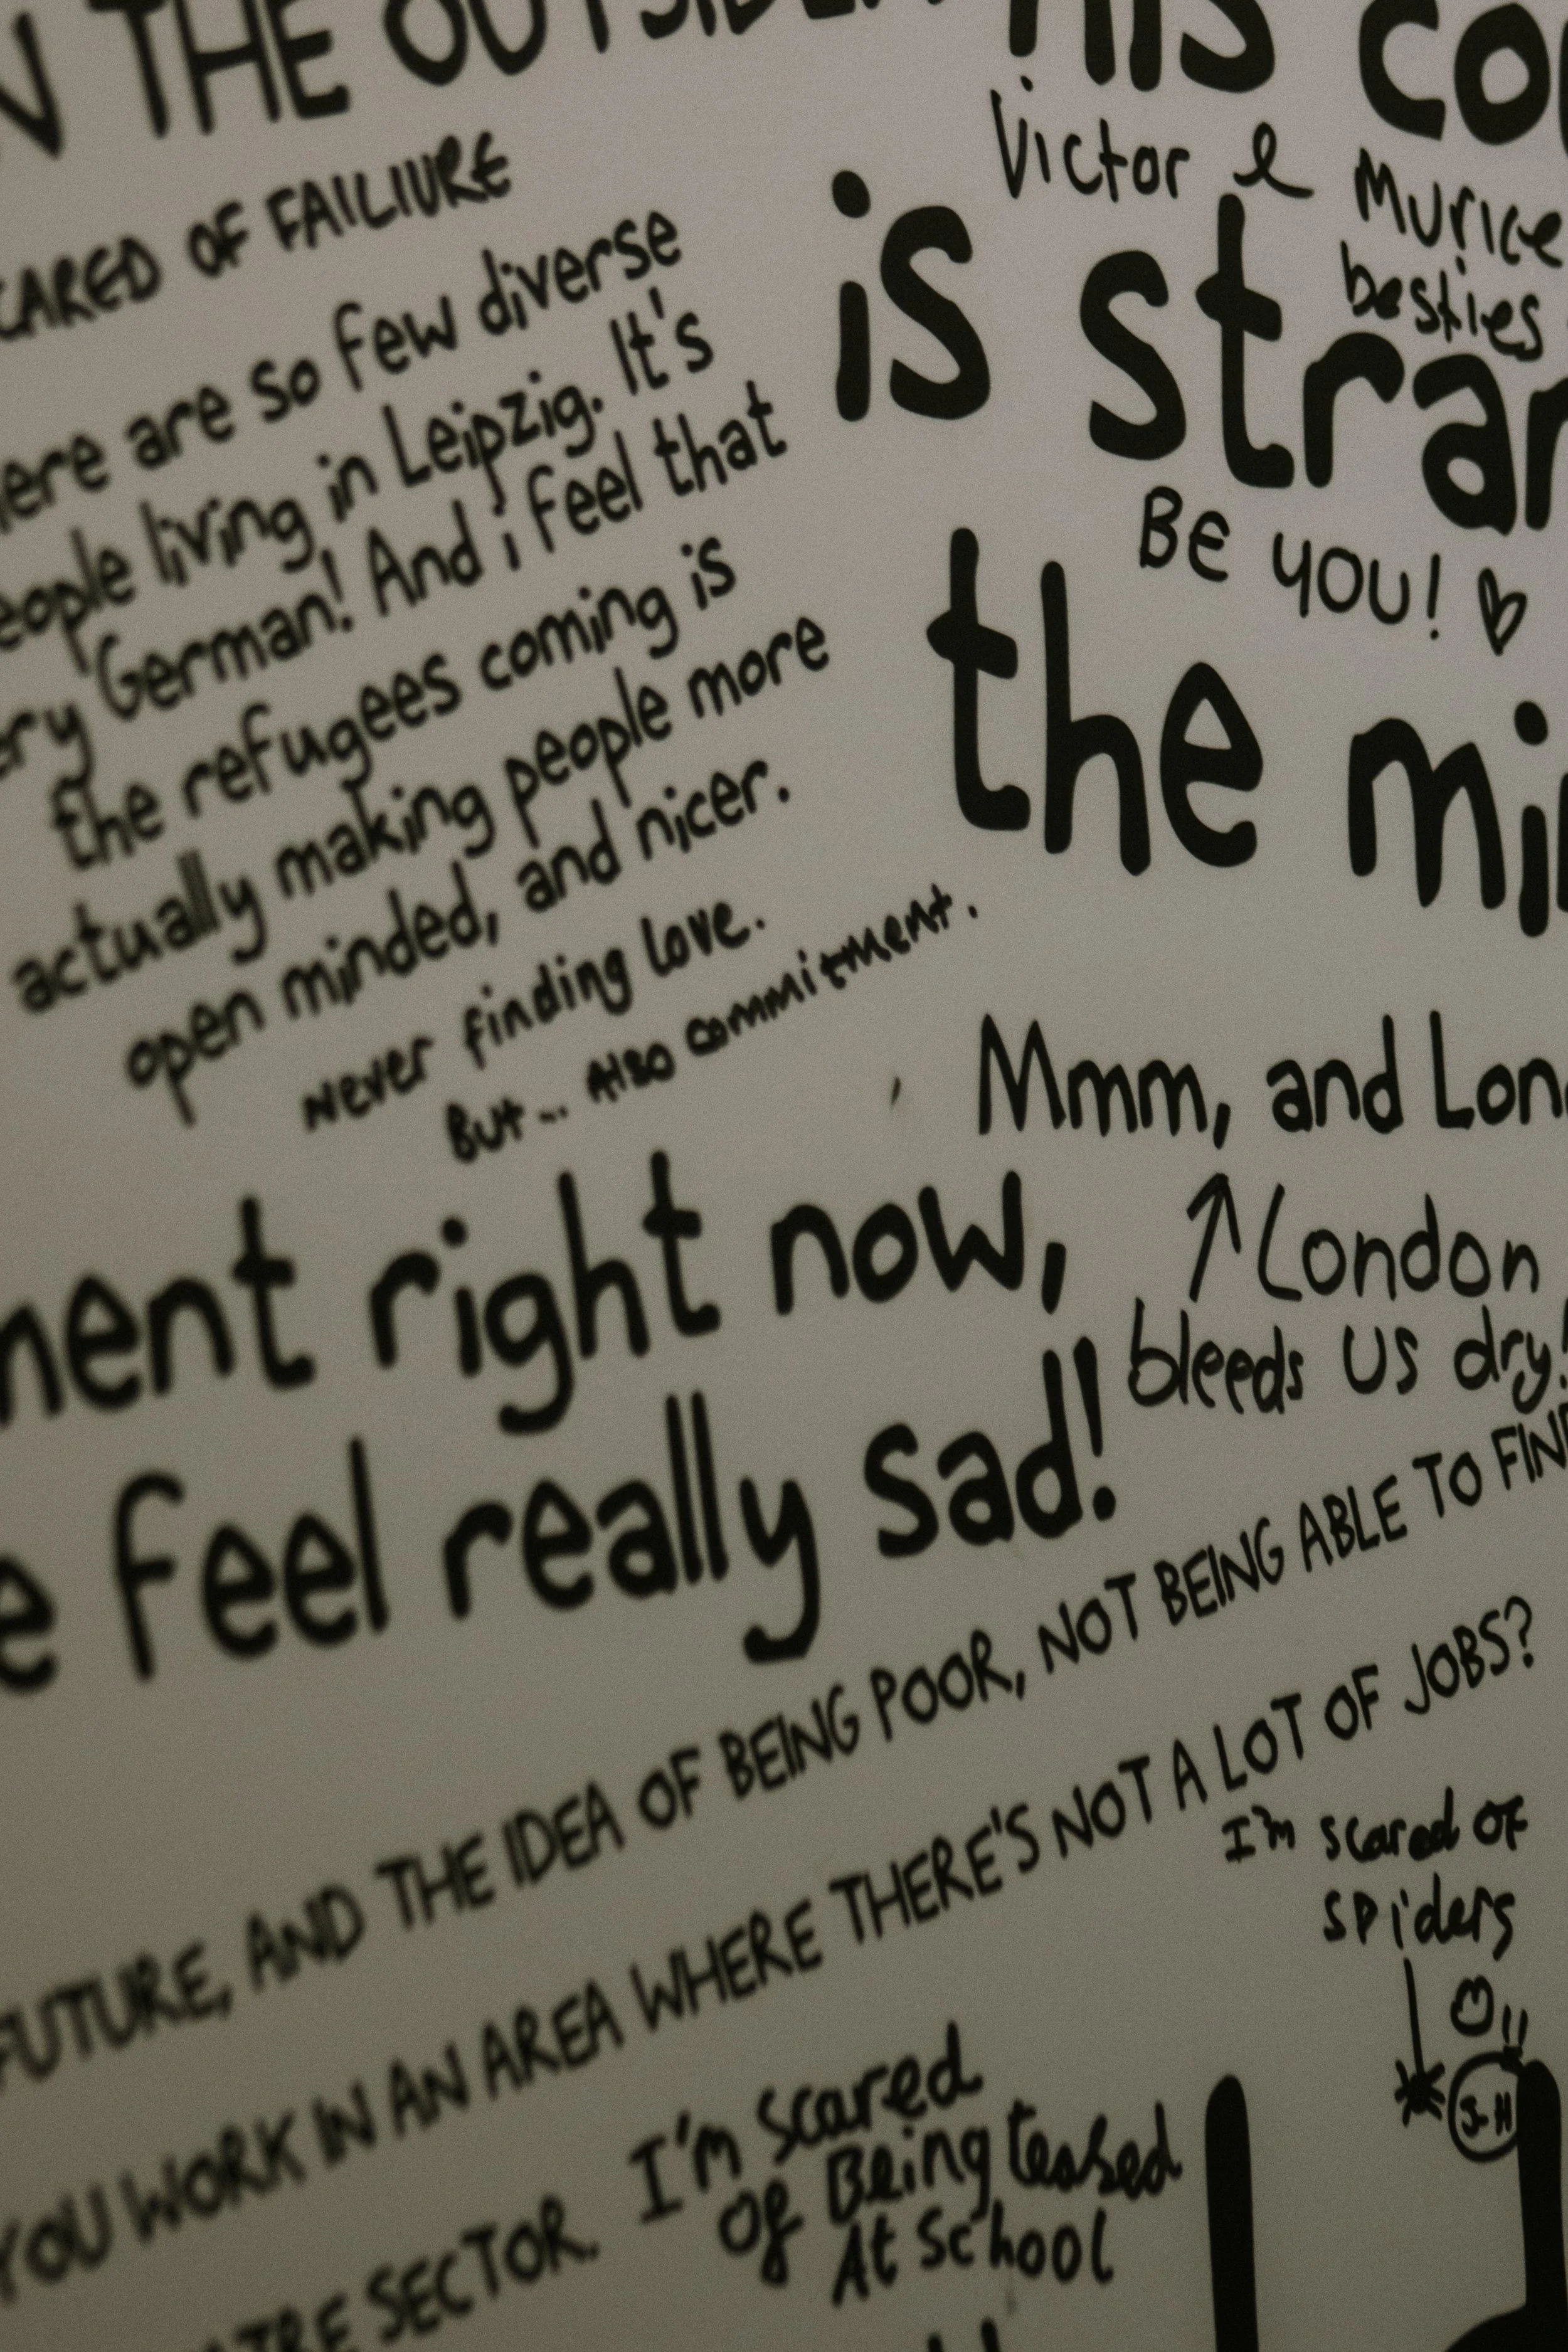 N THE OUTSIDE
CARED OF FAILIURE
here are so few diverse
eople living in Leipzig. It's
ery German! And i feel that
the refugees coming is
actually making people more
open minded, and nicer.
Never finding love.
But... Also commitment.
his co
Victor & Murice
besties
is stran
Be you! ♡
the mi
Mmm, and Lon
↑ London
bleeds us dry!
ment right now,
e feel really sad!
FUTURE, AND THE IDEA OF BEING POOR, NOT BEING ABLE TO FIND
YOU WORK IN AN AREA WHERE THERE'S NOT A LOT OF JOBS?
TRE SECTOR.
I'm scared of
spiders
J-H
I'm scared
of Being teased
At School